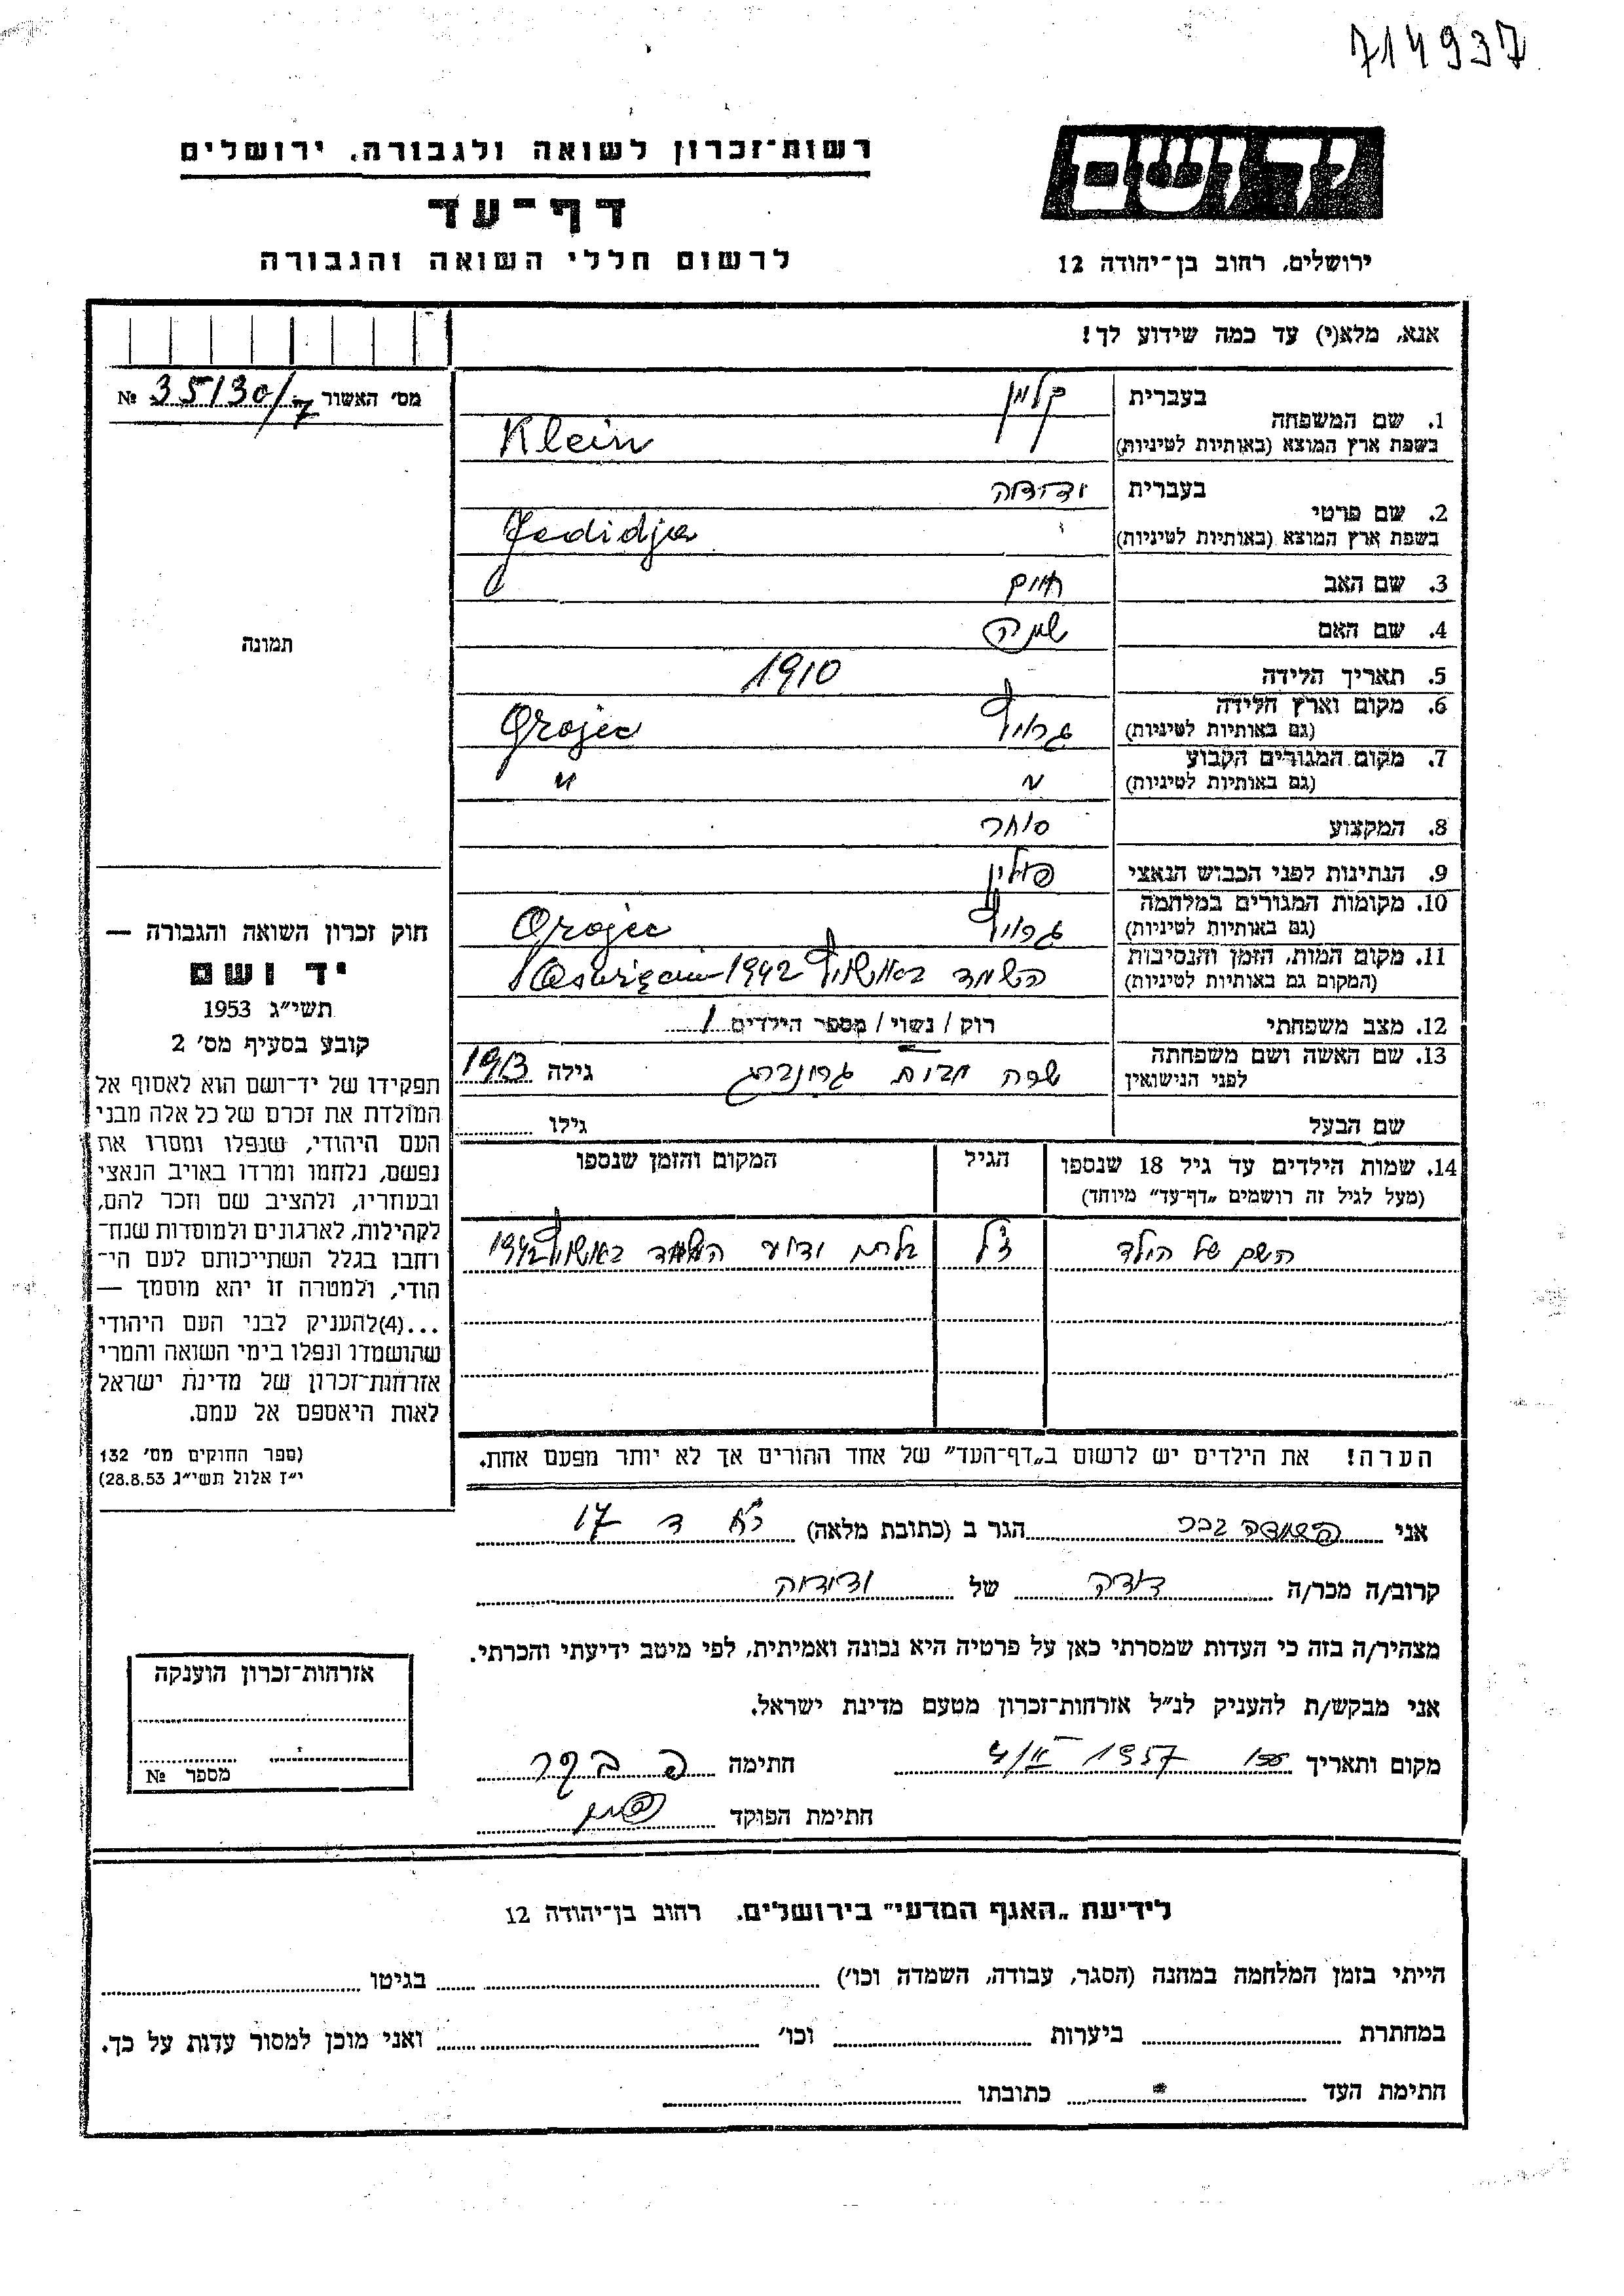 714937
יד ושם
רשות־זכרון לשואה ולגבורה, ירושלים
דף־עד
לרשום חללי השואה והגבורה
ירושלים, רחוב בן־יהודה 12
אנא, מלא(י) עד כמה שידוע לך!
מס׳ האשור 35130/7 №
1. שם המשפחה בעברית קליין
בשפת ארץ המוצא (באותיות לטיניות) Klein
2. שם פרטי בעברית ידידיה
בשפת ארץ המוצא (באותיות לטיניות) Jedidja
3. שם האב חיים
4. שם האם
5. תאריך הלידה 1910
6. מקום וארץ הלידה
(גם באותיות לטיניות) גרויץ Grojec
7. מקום המגורים הקבוע
(גם באותיות לטיניות) " "
8. המקצוע סוחר
9. הנתינות לפני הכבוש הנאצי פולין
10. מקומות המגורים במלחמה
(גם באותיות לטיניות) גרויץ Grojec
11. מקום המות, הזמן והנסיבות
(המקום גם באותיות לטיניות) הושמד באושויץ 1942
12. מצב משפחתי רוק / נשוי / מספר הילדים 1
13. שם האשה ושם משפחתה
לפני הנישואין שרה גרונברג גילה 1913
שם הבעל גילו
14. שמות הילדים עד גיל 18 שנספו
(מעל לגיל זה רושמים „דף־עד" מיוחד)
הגיל
המקום והזמן שנספו
השם של הילד
בלתי ידוע הושמד באושויץ 1942
הערה! את הילדים יש לרשום ב„דף־העד" של אחד ההורים אך לא יותר מפעם אחת.
תמונה
חוק זכרון השואה והגבורה —
יד ושם
תשי״ג 1953
קובע בסעיף מס׳ 2
תפקידו של יד־ושם הוא לאסוף אל
המולדת את זכרם של כל אלה מבני
העם היהודי, שנפלו ומסרו את
נפשם, נלחמו ומרדו באויב הנאצי
ובעוזריו, ולהציב שם וזכר להם,
לקהילות, לארגונים ולמוסדות שנח־
רחבו בגלל השתייכותם לעם הי־
הודי, ולמטרה זו יהא מוסמך —
...(4)להעניק לבני העם היהודי
שהושמדו ונפלו בימי השואה והמרי
אזרחות־זכרון של מדינת ישראל
לאות היאספם אל עמם.
(ספר החוקים מס׳ 132
י״ז אלול תשי״ג 28.8.53)
אני הגר ב (כתובת מלאה) 17
קרוב/ה מכר/ה דודה של ידידיה
מצהיר/ה בזה כי העדות שמסרתי כאן על פרטיה היא נכונה ואמיתית, לפי מיטב ידיעתי והכרתי.
אני מבקש/ת להעניק לנ״ל אזרחות־זכרון מטעם מדינת ישראל.
מקום ותאריך 1957 חתימה
חתימת הפוקד
אזרחות־זכרון הוענקה
מספר №
לידיעת „האגף המדעי" בירושלים, רחוב בן־יהודה 12
הייתי בזמן המלחמה במחנה (הסגר, עבודה, השמדה וכו׳) בגיטו
במחתרת ביערות וכו׳ ואני מוכן למסור עדות על כך.
חתימת העד כתובתו